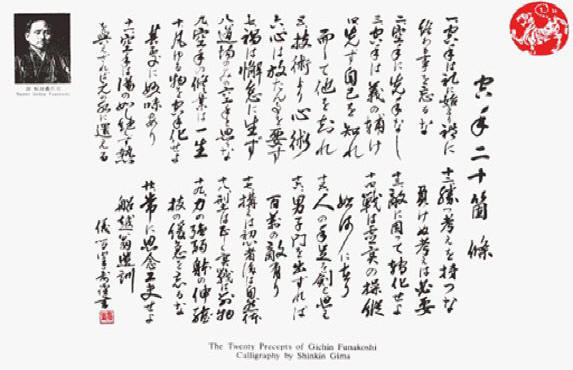 空手二十箇條
一空手は礼に始り禮に
終わる事を忘るな
二空手に先手なし
三空手は義の補け
四先づ自己を知れ
而して他を知れ
五技術より心術
六心は放たん事を要す
七禍は懈怠に生ず
八道場のみの空手と思ふな
九空手の修業は一生
十凡ゆる物を空手化せよ
其処に妙味あり
十一空手は湯の如し絶えず熱
を与えざれば元の水に還える
十二勝つ考えを持つな
負けぬ考えは必要
十三敵に因って轉化せよ
十四戦は虚実の操縦
如何に在り
十五人の手足を剣と思え
十六男子門を出ずれば
百萬の敵有り
十七構えは初心者に後は自然体
十八型は正しく実戦は別物
十九力の強弱躰の伸縮
技の緩急を忘るな
二十常に思念工夫せよ
船越翁遺訓
儀間真謹書
The Twenty Precepts of Gichin Funakoshi
Calligraphy by Shinkin Gima